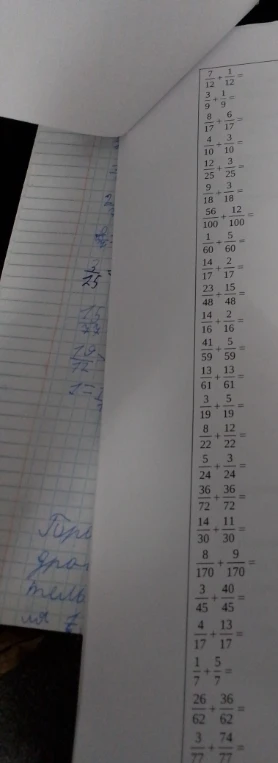 7/12 + 1/12 =
3/9 + 1/9 =
8/17 + 6/17 =
4/10 + 3/10 =
12/25 + 3/25 =
9/18 + 3/18 =
56/100 + 12/100 =
1/60 + 5/60 =
14/17 + 2/17 =
23/48 + 15/48 =
14/16 + 2/16 =
41/59 + 5/59 =
13/61 + 13/61 =
3/19 + 5/19 =
8/22 + 12/22 =
5/24 + 3/24 =
36/72 + 36/72 =
14/30 + 11/30 =
8/170 + 9/170 =
3/45 + 40/45 =
4/17 + 13/17 =
1/7 + 5/7 =
26/62 + 36/62 =
3/77 + 74/77 =